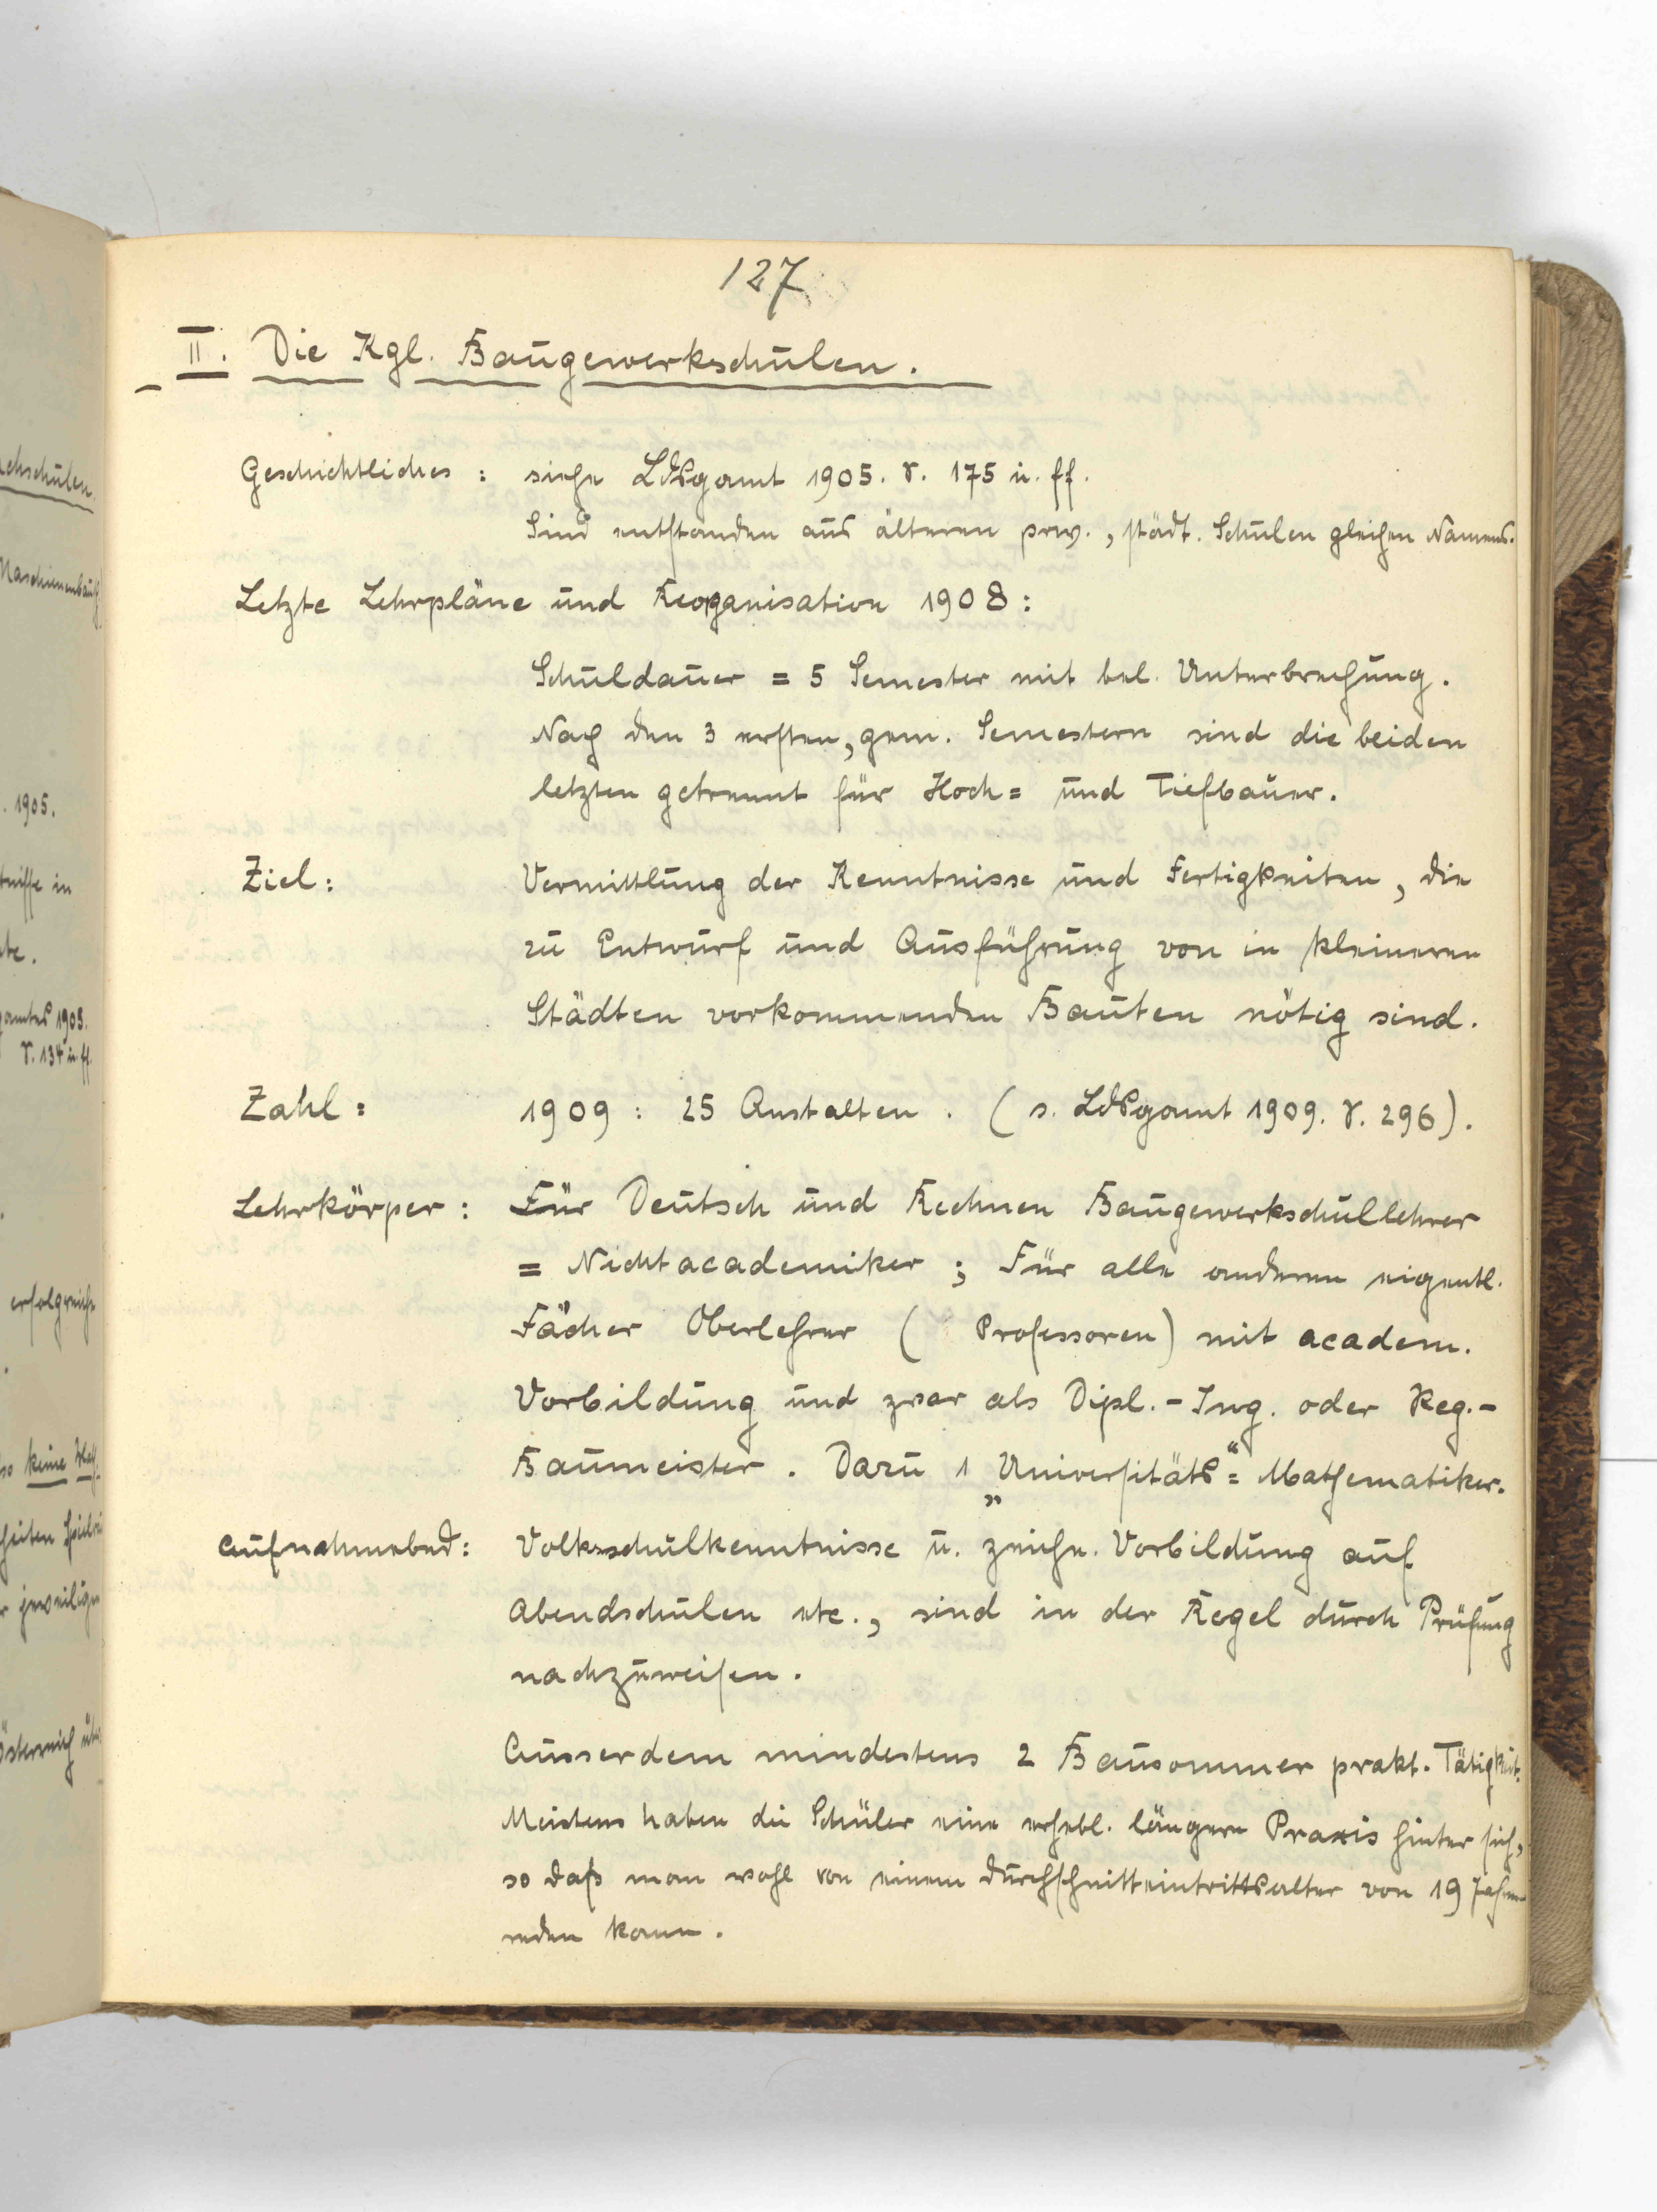 127
II. Die Kgl. Baugewerkschulen.
Geschichtliches : siehe LdGgamt 1905. S. 175 u. ff.
Sind entstanden aus älteren priv., städt. Schulen gleichen Namens.
Letzte Lehrpläne und Reorganisation 1908 :
Schuldauer = 5 Semester mit bel. Unterbrechung.
Nach den 3 ersten, gem. Semestern sind die beiden
letzten getrennt für Hoch= und Tiefbauer.
Ziel: Vermittlung der Kenntnisse und Fertigkeiten, die
zu Entwurf und Ausführung von in kleineren
Städten vorkommenden Bauten nötig sind.
Zahl: 1909 : 25 Anstalten . ( s. LdGgamt 1909. S. 296).
Lehrkörper : Für Deutsch und Rechnen Baugewerkschullehrer
= Nichtacademiker ; Für alle anderen eigentl.
Fächer Oberlehrer ( Professoren) mit academ.
Vorbildung und zwar als Dipl.-Ing. oder Reg.-
Baumeister . Dazu 1 „Universitäts"= Mathematiker.
Aufnahmebed: Volksschulkenntnisse u. zeichn. Vorbildung auf
Abendschulen etc., sind in der Regel durch Prüfung
nachzuweisen.
Ausserdem mindestens 2 Bausommer prakt. Tätigkeit.
Meistens haben die Schüler eine erhebl. längere Praxis hinter sich,
so daß man wohl von einem Durchschnitteintrittsalter von 19 Jahren
reden kann.
chschulen.
Maschinenbau
. 1905.
in
te.
1909.
S. 134 u. ff.
erfolgreiche
so keine
jeweiligen
Österreich